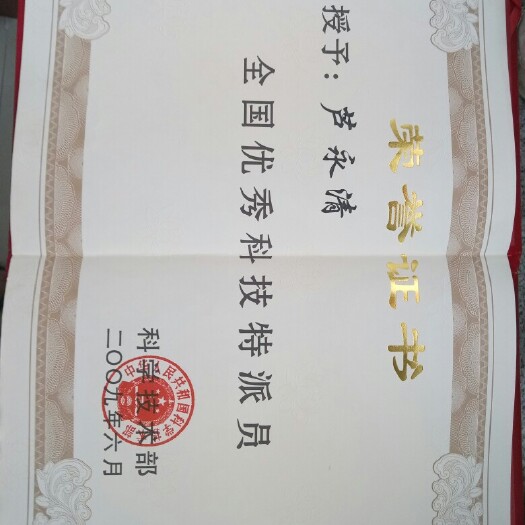 荣誉证书
授予：芦永清
全国优秀科技特派员
科学技术部
二〇〇九年六月
中华人民共和国科学技术部